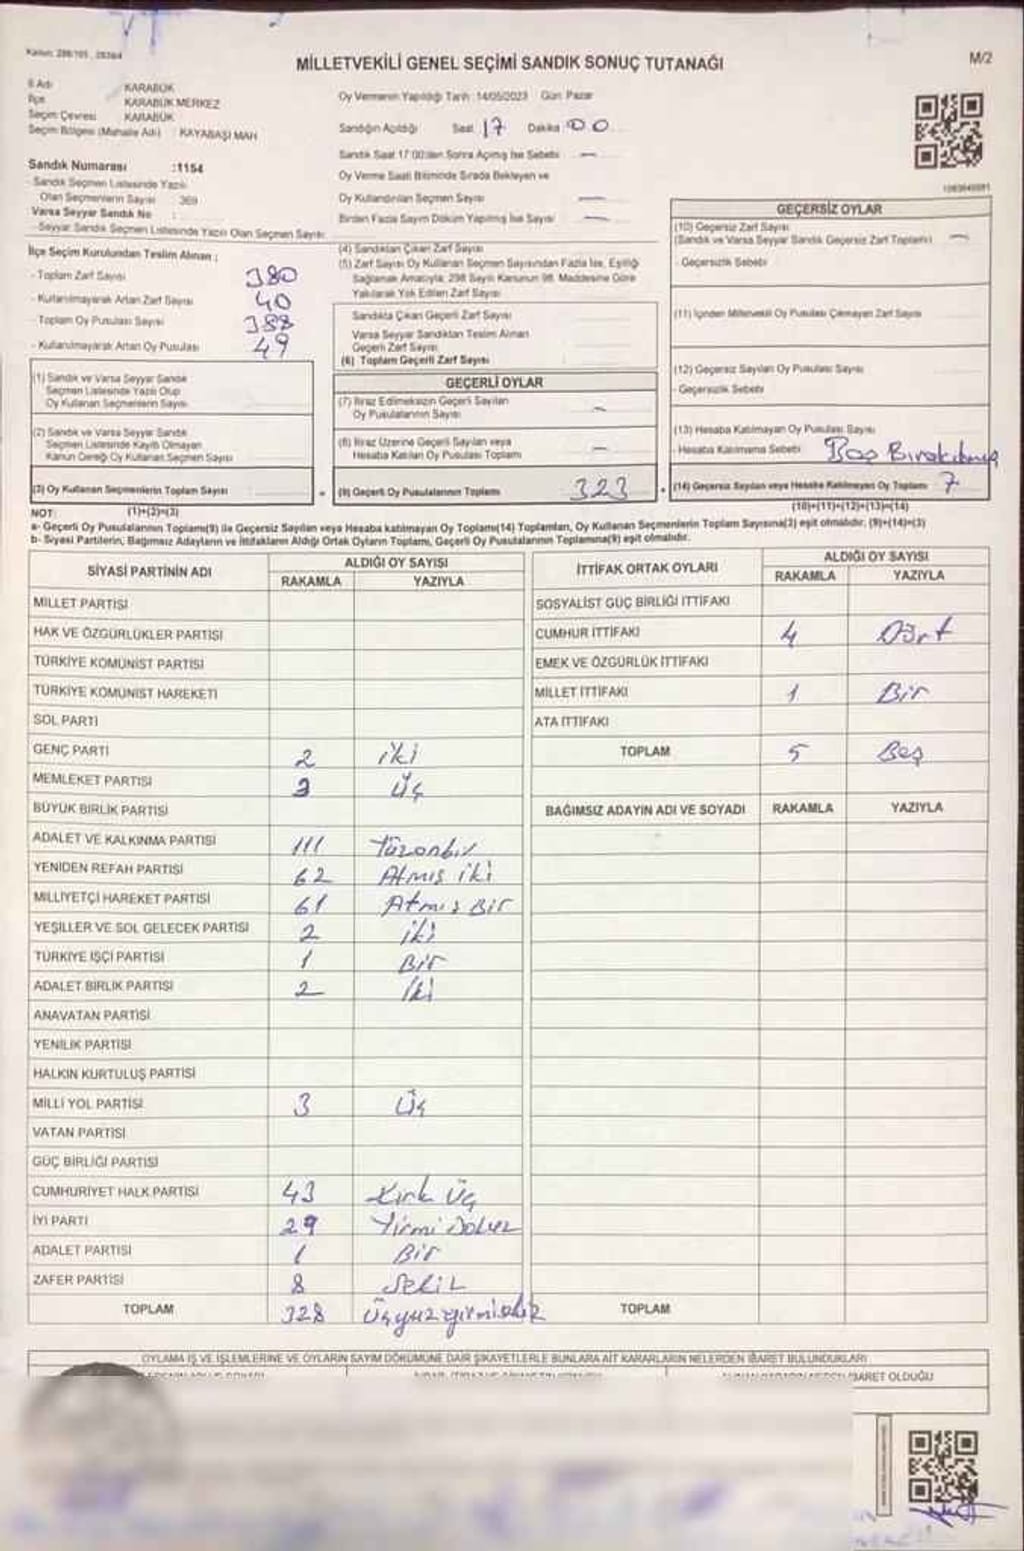 MİLLETVEKİLİ GENEL SEÇİMİ SANDIK SONUÇ TUTANAĞI
M/2
İl Adı : KARABÜK
İlçe : KARABÜK MERKEZ
Seçim Çevresi : KARABÜK
Seçim Bölgesi (Mahalle Adı) : KAYABAŞI MAH
Sandık Numarası :1154
- Sandık Seçmen Listesinde Yazılı
Olan Seçmenlerin Sayısı : 369
Varsa Seyyar Sandık No :
- Seyyar Sandık Seçmen Listesinde Yazılı Olan Seçmen Sayısı:
Oy Vermenin Yapıldığı Tarih :14/05/2023 Gün: Pazar
Sandığın Açıldığı Saat 17 Dakika 00
Sandık Saat 17:00'den Sonra Açılmış İse Sebebi : —
Oy Verme Saati Bitiminde Sırada Bekleyen ve
Oy Kullandırılan Seçmen Sayısı —
Birden Fazla Sayım Döküm Yapılmış İse Sayısı —
İlçe Seçim Kurulundan Teslim Alınan ;
- Toplam Zarf Sayısı 380
- Kullanılmayarak Artan Zarf Sayısı 40
- Toplam Oy Pusulası Sayısı 388
- Kullanılmayarak Artan Oy Pusulası 49
(1) Sandık ve Varsa Seyyar Sandık
Seçmen Listesinde Yazılı Olup
Oy Kullanan Seçmenlerin Sayısı
(2) Sandık ve Varsa Seyyar Sandık
Seçmen Listesinde Kayıtlı Olmayan
Kanun Gereği Oy Kullanan Seçmen Sayısı
(3) Oy Kullanan Seçmenlerin Toplam Sayısı
(1)+(2)=(3)
(4) Sandıktan Çıkan Zarf Sayısı
(5) Zarf Sayısı Oy Kullanan Seçmen Sayısından Fazla İse, Eşitliği
Sağlamak Amacıyla; 298 Sayılı Kanunun 98. Maddesine Göre
Yakılarak Yok Edilen Zarf Sayısı
Sandıkta Çıkan Geçerli Zarf Sayısı
Varsa Seyyar Sandıktan Teslim Alınan
Geçerli Zarf Sayısı
(6) Toplam Geçerli Zarf Sayısı
GEÇERLİ OYLAR
(7) İtiraz Edilmeksizin Geçerli Sayılan
Oy Pusulalarının Sayısı —
(8) İtiraz Üzerine Geçerli Sayılan veya
Hesaba Katılan Oy Pusulası Toplamı —
(9) Geçerli Oy Pusulalarının Toplamı 323
GEÇERSİZ OYLAR
(10) Geçersiz Zarf Sayısı
(Sandık ve Varsa Seyyar Sandık Geçersiz Zarf Toplamı) —
- Geçersizlik Sebebi
(11) İçinden Milletvekili Oy Pusulası Çıkmayan Zarf Sayısı
(12) Geçersiz Sayılan Oy Pusulası Sayısı
- Geçersizlik Sebebi
(13) Hesaba Katılmayan Oy Pusulası Sayısı
- Hesaba Katılmama Sebebi Boş Bırakılmış
(14) Geçersiz Sayılan veya Hesaba Katılmayan Oy Toplamı 7
(10)+(11)+(12)+(13)=(14)
NOT:
a- Geçerli Oy Pusulalarının Toplamı(9) ile Geçersiz Sayılan veya Hesaba katılmayan Oy Toplamı(14) Toplamları, Oy Kullanan Seçmenlerin Toplam Sayısına(3) eşit olmalıdır. (9)+(14)=(3)
b- Siyasi Partilerin, Bağımsız Adayların ve İttifakların Aldığı Ortak Oyların Toplamı, Geçerli Oy Pusulalarının Toplamına(9) eşit olmalıdır.
SİYASİ PARTİNİN ADI ALDIĞI OY SAYISI
RAKAMLA YAZIYLA
MİLLET PARTİSİ
HAK VE ÖZGÜRLÜKLER PARTİSİ
TÜRKİYE KOMÜNİST PARTİSİ
TÜRKİYE KOMÜNİST HAREKETİ
SOL PARTİ
GENÇ PARTİ 2 iki
MEMLEKET PARTİSİ 3 Üç
BÜYÜK BİRLİK PARTİSİ
ADALET VE KALKINMA PARTİSİ 111 Yüzonbir
YENİDEN REFAH PARTİSİ 62 Atmış iki
MİLLİYETÇİ HAREKET PARTİSİ 61 Atmış Bir
YEŞİLLER VE SOL GELECEK PARTİSİ 2 iki
TÜRKİYE İŞÇİ PARTİSİ 1 Bir
ADALET BİRLİK PARTİSİ 2 İki
ANAVATAN PARTİSİ
YENİLİK PARTİSİ
HALKIN KURTULUŞ PARTİSİ
MİLLİ YOL PARTİSİ 3 Üç
VATAN PARTİSİ
GÜÇ BİRLİĞİ PARTİSİ
CUMHURİYET HALK PARTİSİ 43 Kırk Üç
İYİ PARTİ 29 Yirmi Dokuz
ADALET PARTİSİ 1 Bir
ZAFER PARTİSİ 8 Sekiz
TOPLAM 328 Üçyüzyirmisekiz
İTTİFAK ORTAK OYLARI ALDIĞI OY SAYISI
RAKAMLA YAZIYLA
SOSYALİST GÜÇ BİRLİĞİ İTTİFAKI
CUMHUR İTTİFAKI 4 Dört
EMEK VE ÖZGÜRLÜK İTTİFAKI
MİLLET İTTİFAKI 1 Bir
ATA İTTİFAKI
TOPLAM 5 Beş
BAĞIMSIZ ADAYIN ADI VE SOYADI RAKAMLA YAZIYLA
TOPLAM
OYLAMA İŞ VE İŞLEMLERİNE VE OYLARIN SAYIM DÖKÜMÜNE DAİR ŞİKAYETLERLE BUNLARA AİT KARARLARIN NELERDEN İBARET BULUNDUKLARI
İBARET OLDUĞU